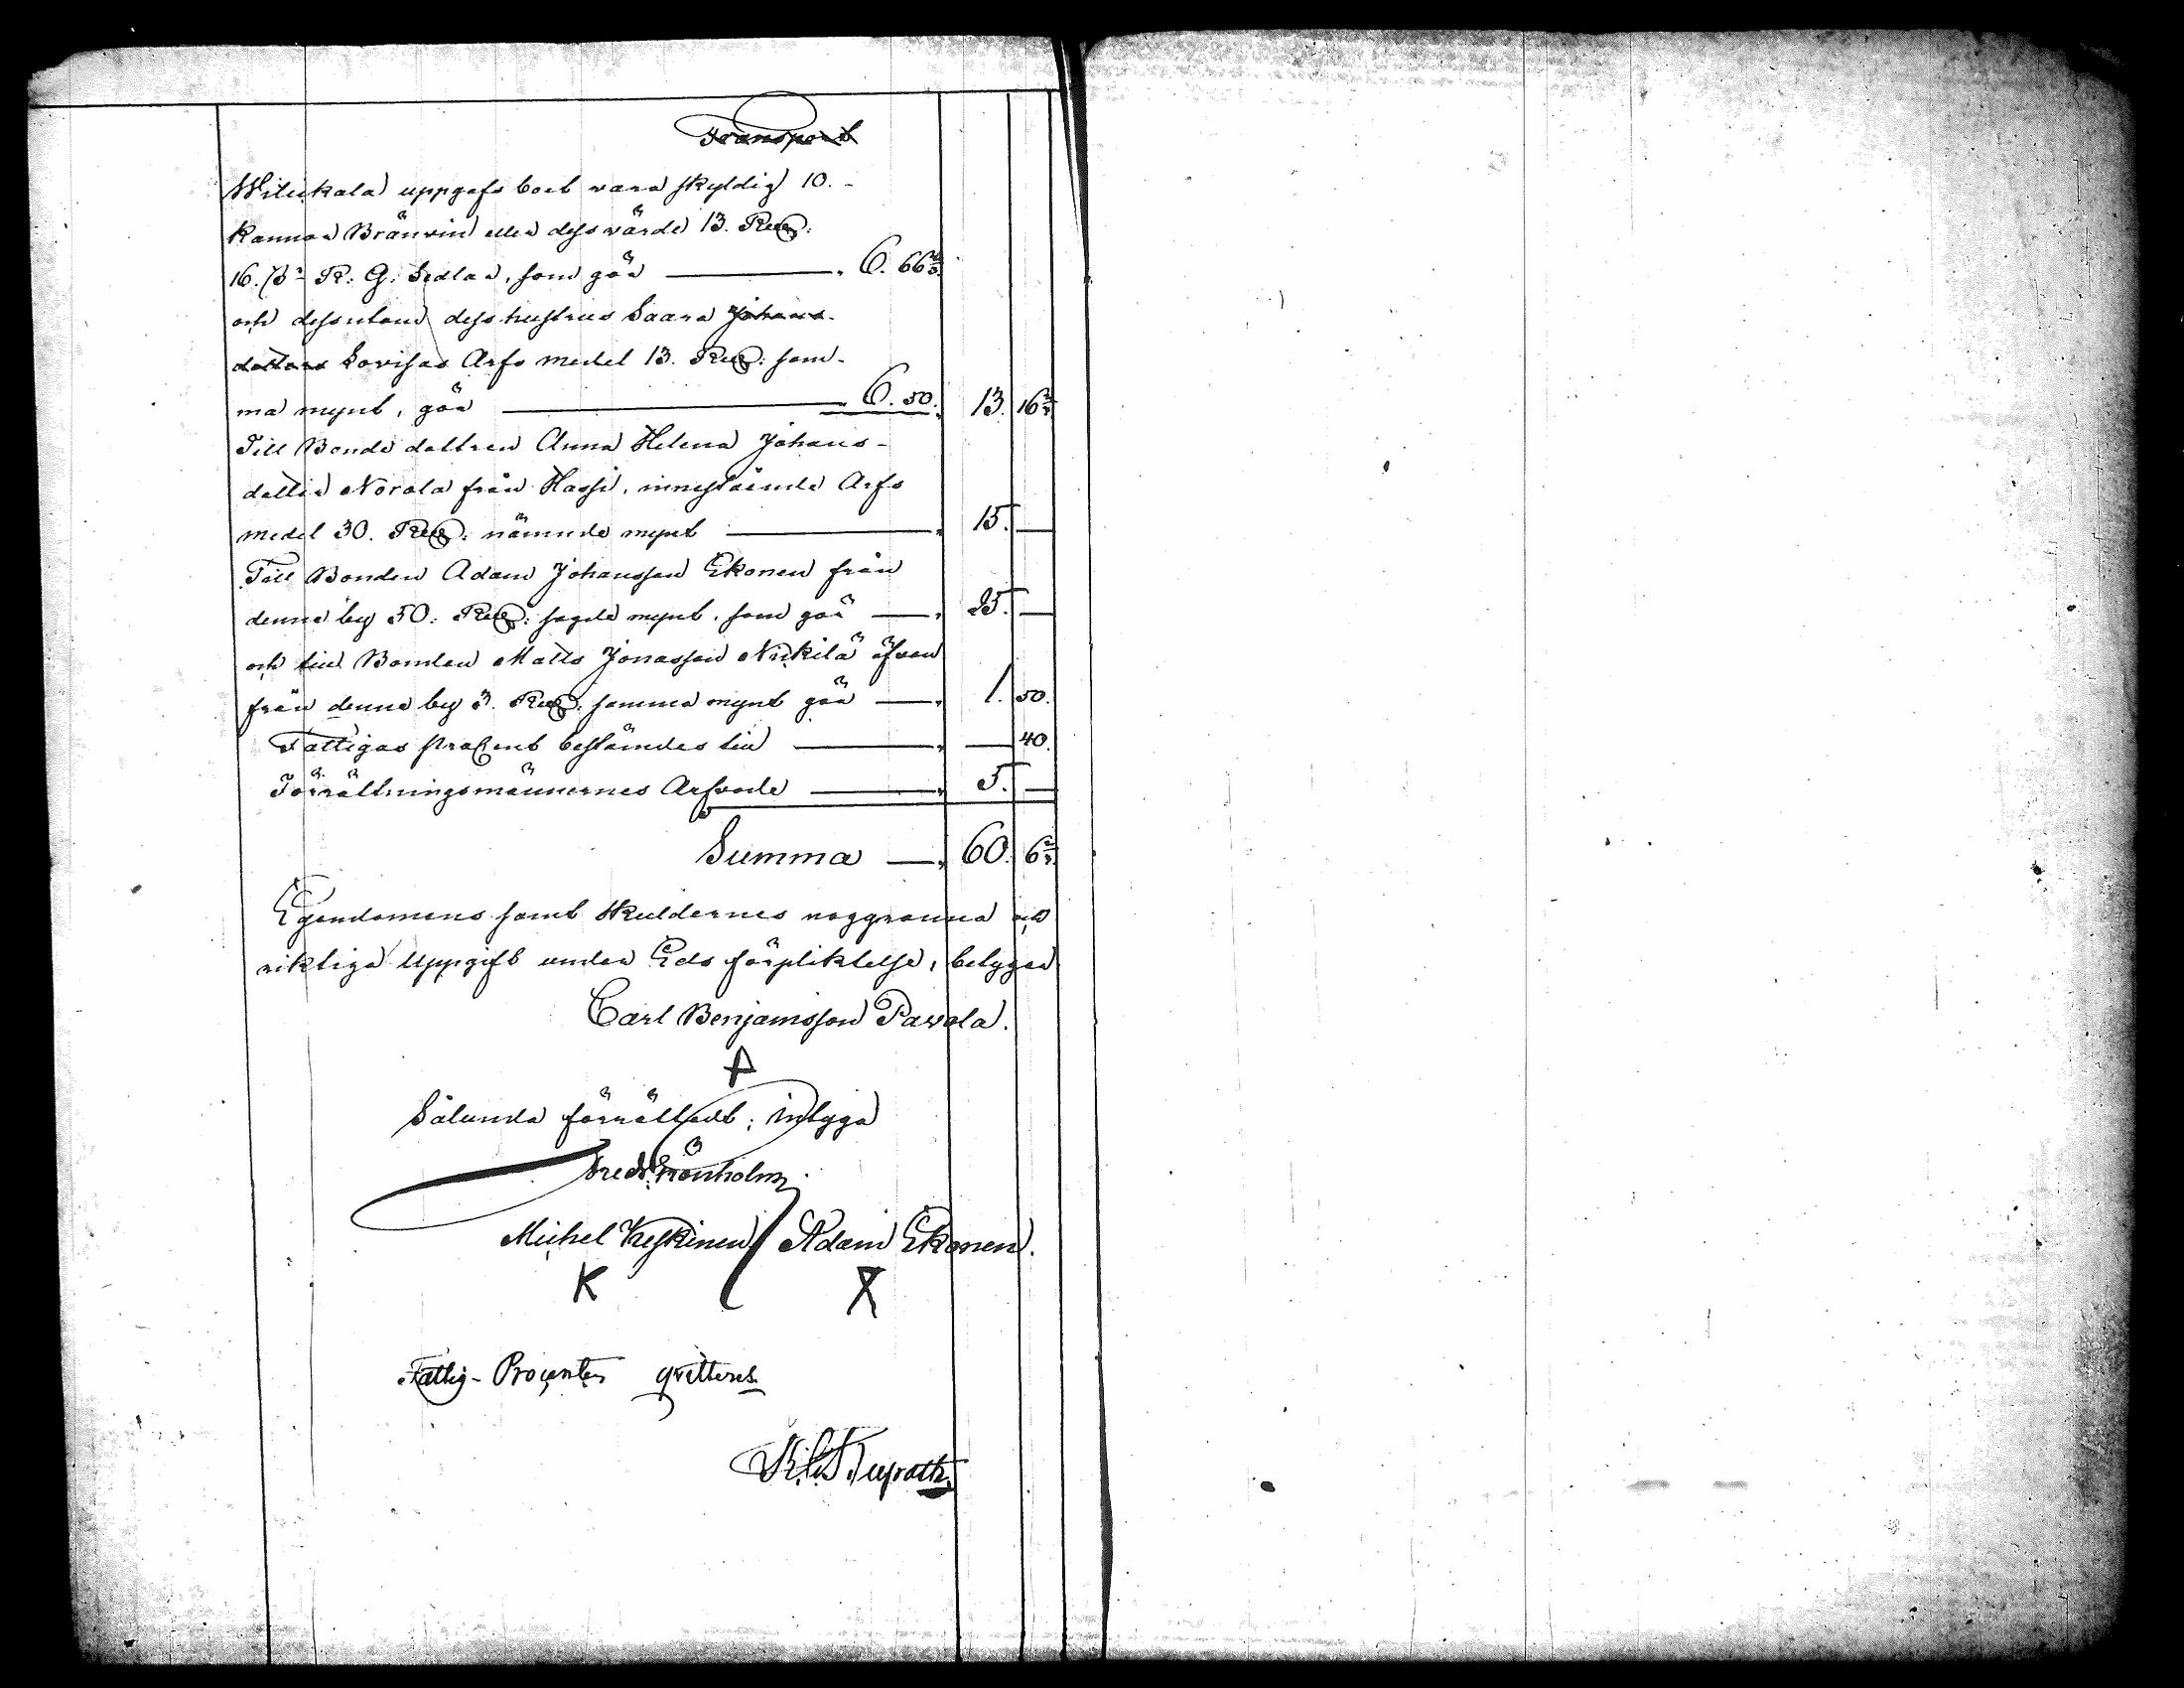 Transport
Wiliskala uppgafs boet vara skyldig 10.-
kannor Bränvin eller dess värde 13. R:
16. /3 R: G: Sedlar, som gör — 6. 66 2/3
och dessutom dess hustrus Saara Johans-
dotters Lovisas Arfs medel 13. R: sam-
ma mynt, gör — 6. 50. 13. 16 2/3
Till Bonde dottren Anna Helena Johans-
dotter Norola från Hassi, innestående Arfs
medel 30. R: nämnde mynt — 15. —
Till Bonden Adam Johansson Ekonen från
denne by 50. R: sagde mynt, som gör — 25. —
och till Bonden Matts Jonasson Niskilä äfven
från denne by 3. R: samma mynt gör — 1. 50.
Fattigas procent bestämdes till — 40.
Förrättningsmännernes Arfvode — 5. —
Summa — 60. 6 2/3
Egendomens samt skuldernes noggranna och
riktiga uppgift under Eds förpliktelse, betygar
Carl Benjamsson Pavola.
Sålunda förrättadt; intyga
Fredr: Grönholm
Michel Keskinen Adam Ekonen.
K X
Fattig-Procenten qvitteras